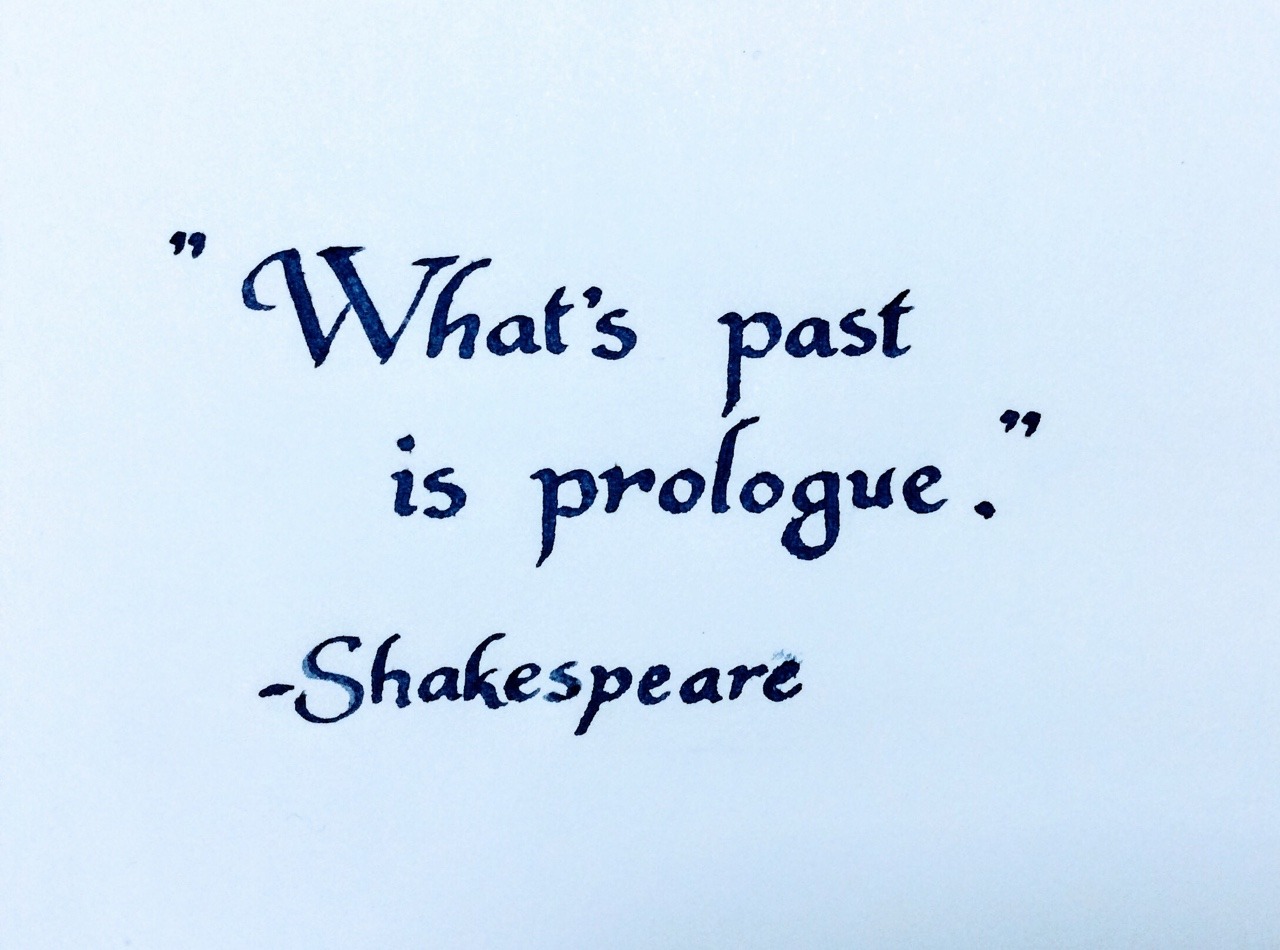 ”What’s past
is prologue.”
-Shakespeare